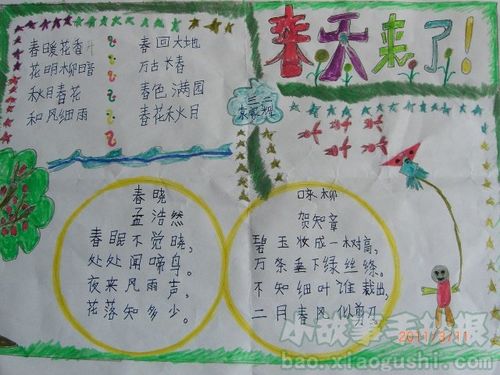 春天来了！
春暖花香
花明柳暗
秋月春花
和风细雨
春回大地
万古长春
春色满园
春花秋月
春晓
孟浩然
春眠不觉晓，
处处闻啼鸟。
夜来风雨声，
花落知多少。
咏柳
贺知章
碧玉妆成一树高，
万条垂下绿丝绦。
不知细叶谁裁出，
二月春风似剪刀
小故事手抄报
2011/3/11
bao.xiaogushi.com